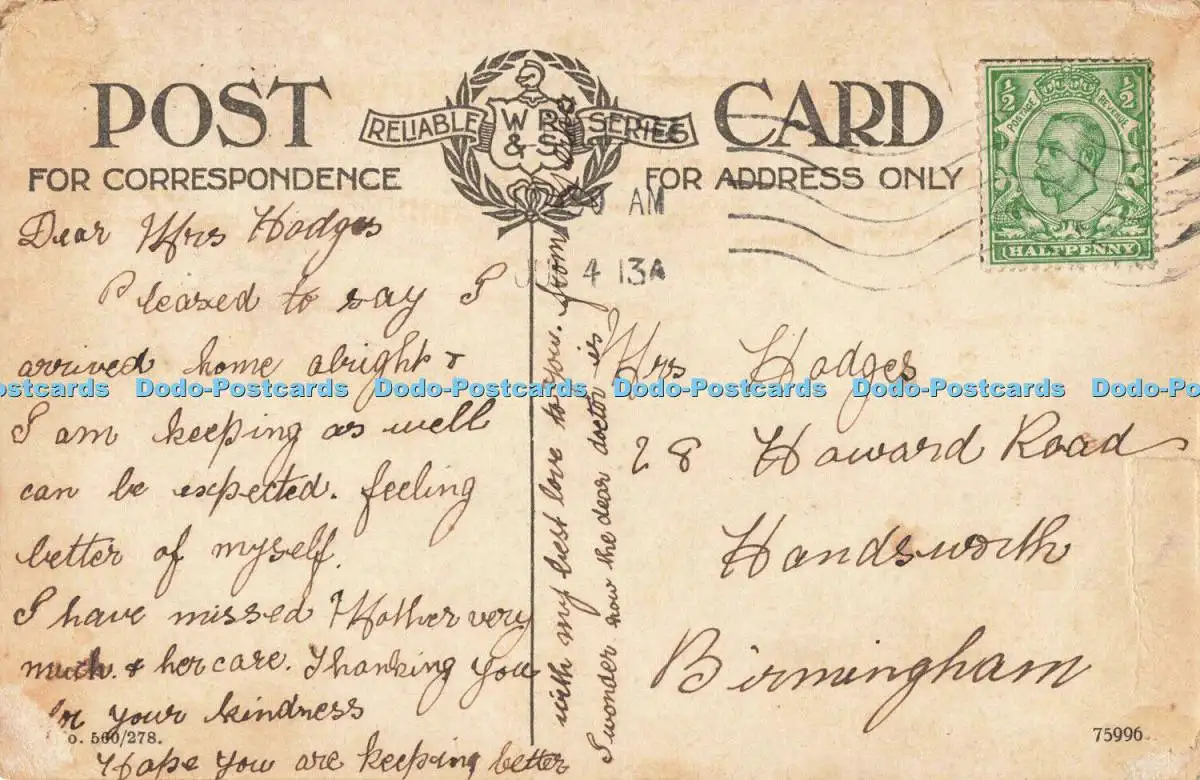 POST CARD
RELIABLE W R & S SERIES
FOR CORRESPONDENCE
FOR ADDRESS ONLY
½ ½
POSTAGE REVENUE
HALFPENNY
30 AM
4 13A
Dear Mrs Hodges
Pleased to say I
arrived home alright &
I am keeping as well
can be expected. feeling
better of myself.
I have missed Mother very
much. & her care. Thanking you
for your kindness
o. 560/278.
Hope you are keeping better
with my best love to you. from
I wonder how the dear doctor is
Mrs Hodges
28 Howard Road
Handsworth
Birmingham
75996
Dodo-Postcards Dodo-Postcards Dodo-Postcards Dodo-Postcards